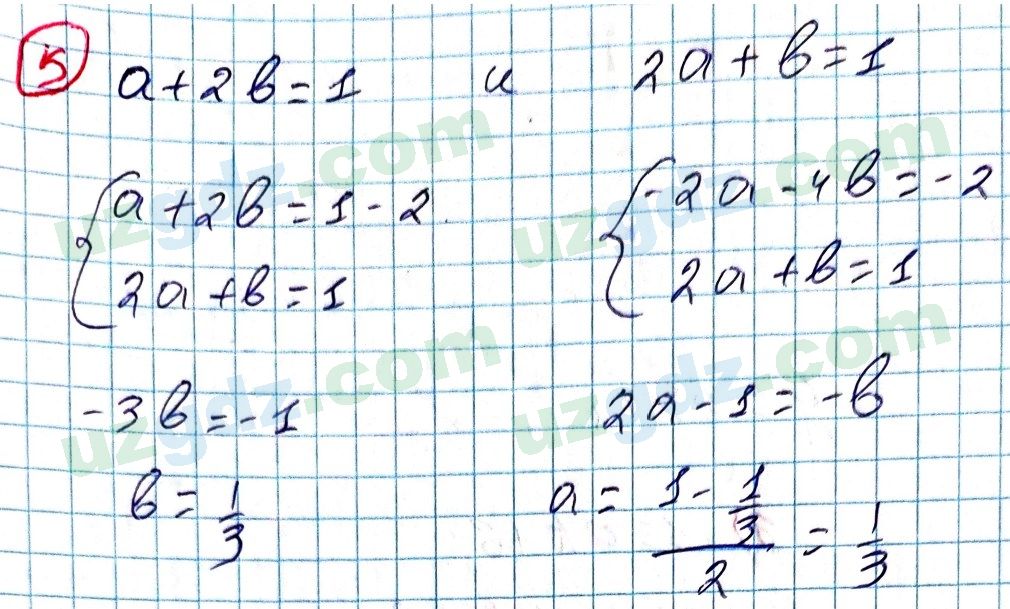 5 a + 2в = 1 и 2a + в = 1
{ a + 2в = 1 - 2
2a + в = 1
{ -2a - 4в = -2
2a + в = 1
-3в = -1 2a - 1 = -в
в = 1/3 a = (1 - 1/3)/2 = 1/3
uzgdz.com
uzgdz.com
uzgdz.com
uzgdz.com